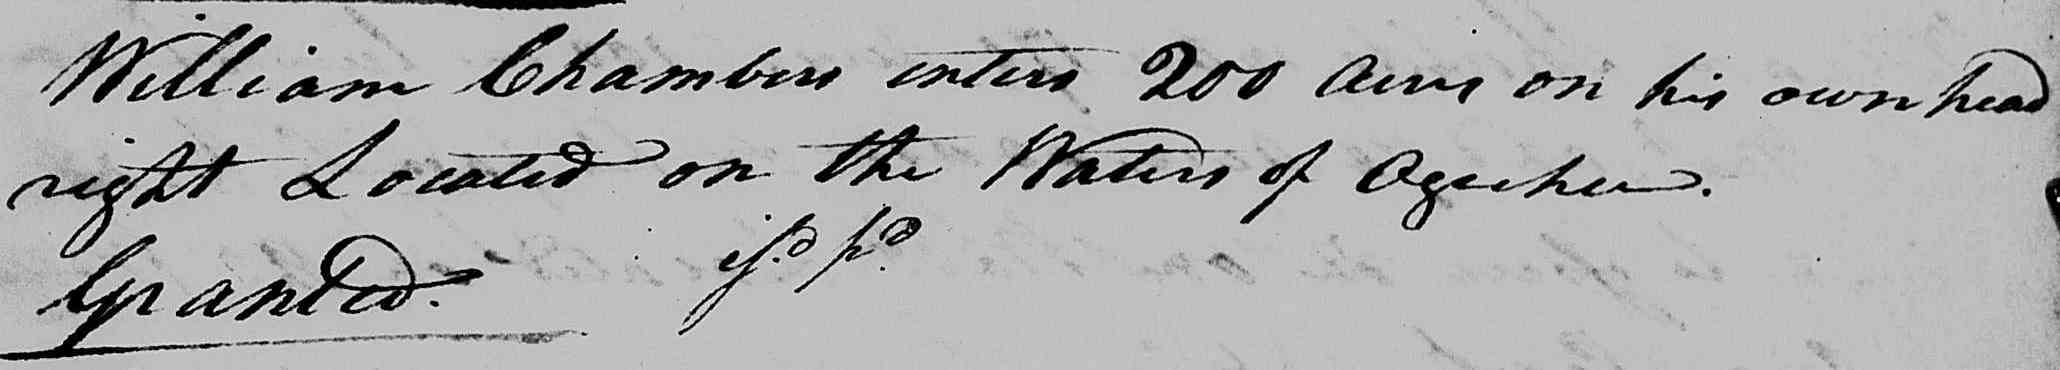 William Chambers enters 200 acres on his own head
right Located on the Waters of Ogechee.
Granted. isd pd